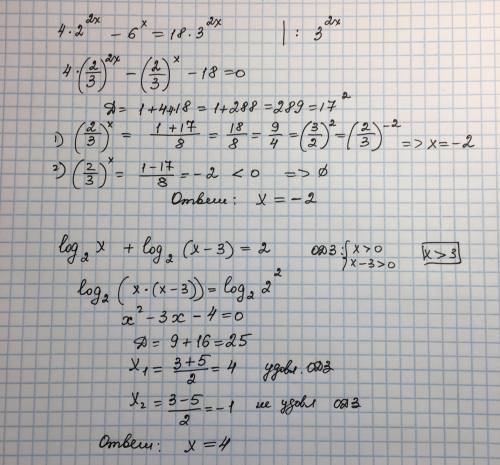 4·2^{2x} − 6^x = 18·3^{2x} | : 3^{2x}
4·(2/3)^{2x} − (2/3)^x − 18 = 0
D = 1+4·4·18 = 1+288 = 289 = 17^2
1) (2/3)^x = (1+17)/8 = 18/8 = 9/4 = (3/2)^2 = (2/3)^{−2} => x = −2
2) (2/3)^x = (1−17)/8 = −2 < 0 => ∅
Ответ: x = −2
log_2 x + log_2 (x−3) = 2 ОДЗ: { x>0 x−3>0 x>3
log_2 (x·(x−3)) = log_2 2^2
x^2 − 3x − 4 = 0
D = 9 + 16 = 25
x_1 = (3+5)/2 = 4 удовл. ОДЗ
x_2 = (3−5)/2 = −1 не удовл ОДЗ
Ответ: x = 4